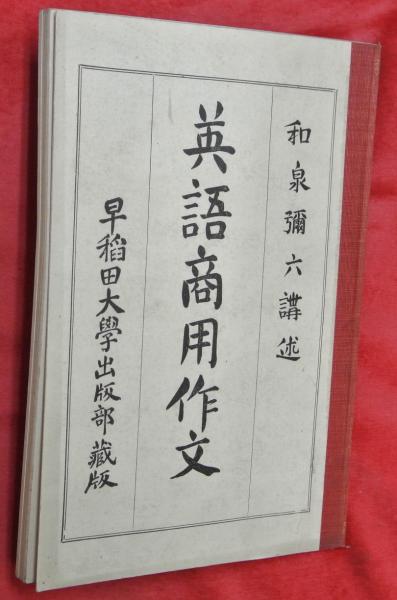 和泉彌六講述
英語商用作文
早稲田大學出版部藏版